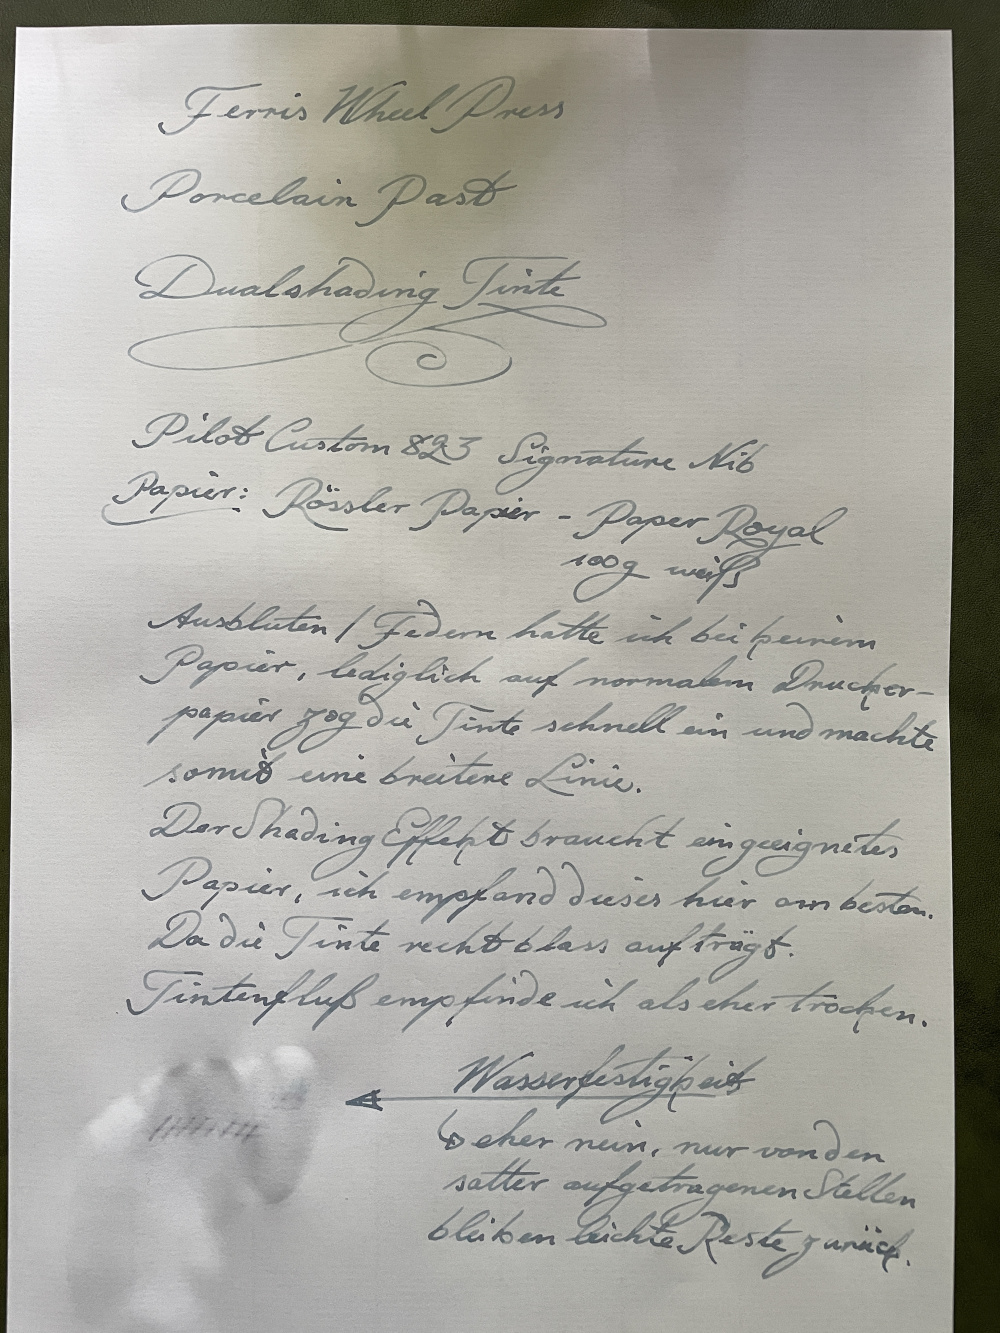 Ferris Wheel Press
Porcelain Past
Dualshading Tinte
Pilot Custom 823 Signature Nib
Papier: Rössler Papier - Paper Royal
100g weiß
Ausbluten / Federn hatte ich bei keinem
Papier, lediglich auf normalem Drucker-
papier zog die Tinte schnell ein und machte
somit eine breitere Linie.
Der Shading Effekt braucht ein geeignetes
Papier, ich empfand dieses hier am besten.
Da die Tinte recht blass aufträgt.
Tintenfluß empfinde ich als eher trocken.
Wasserfestigkeit
↳ eher nein, nur von den
satter aufgetragenen Stellen
bleiben leichte Reste zurück.